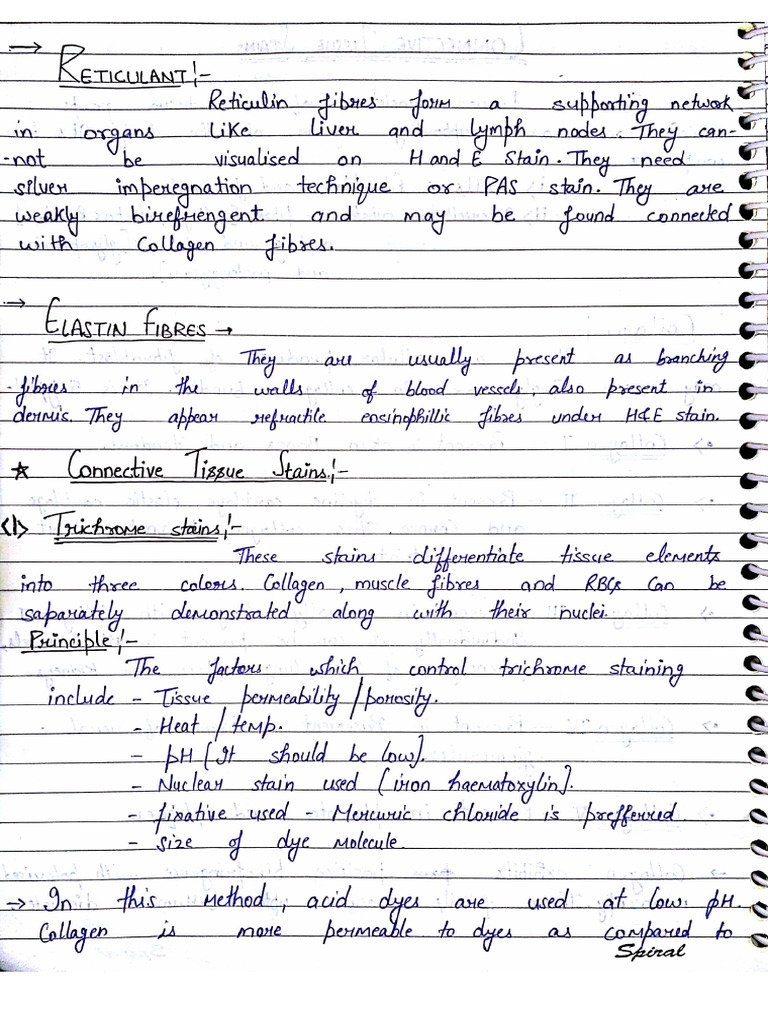 → RETICULANT:-
Reticulin fibres form a supporting network
in organs like liver and lymph nodes. They can-
-not be visualised on H and E stain. They need
silver imperegnation technique or PAS stain. They are
weakly birefrengent and may be found connected
with collagen fibres.
→ ELASTIN FIBRES →
They are usually present as branching
fibres in the walls of blood vessels, also present in
dermis. They appear refractile eosinophillic fibres under H&E stain.
☆ Connective Tissue Stains:-
<1> Trichrome stains:-
These stains differentiate tissue elements
into three colors. Collagen, muscle fibres and RBCs can be
saparately demonstrated along with their nuclei.
Principle:-
The factors which control trichrome staining
include - Tissue permeability / porosity.
- Heat / temp.
- pH [It should be low].
- Nuclear stain used [iron haematoxylin].
- fixative used - Mercuric chloride is prefferred.
- size of dye molecule.
→ In this method, acid dyes are used at low pH.
Collagen is more permeable to dyes as compared to
Spiral